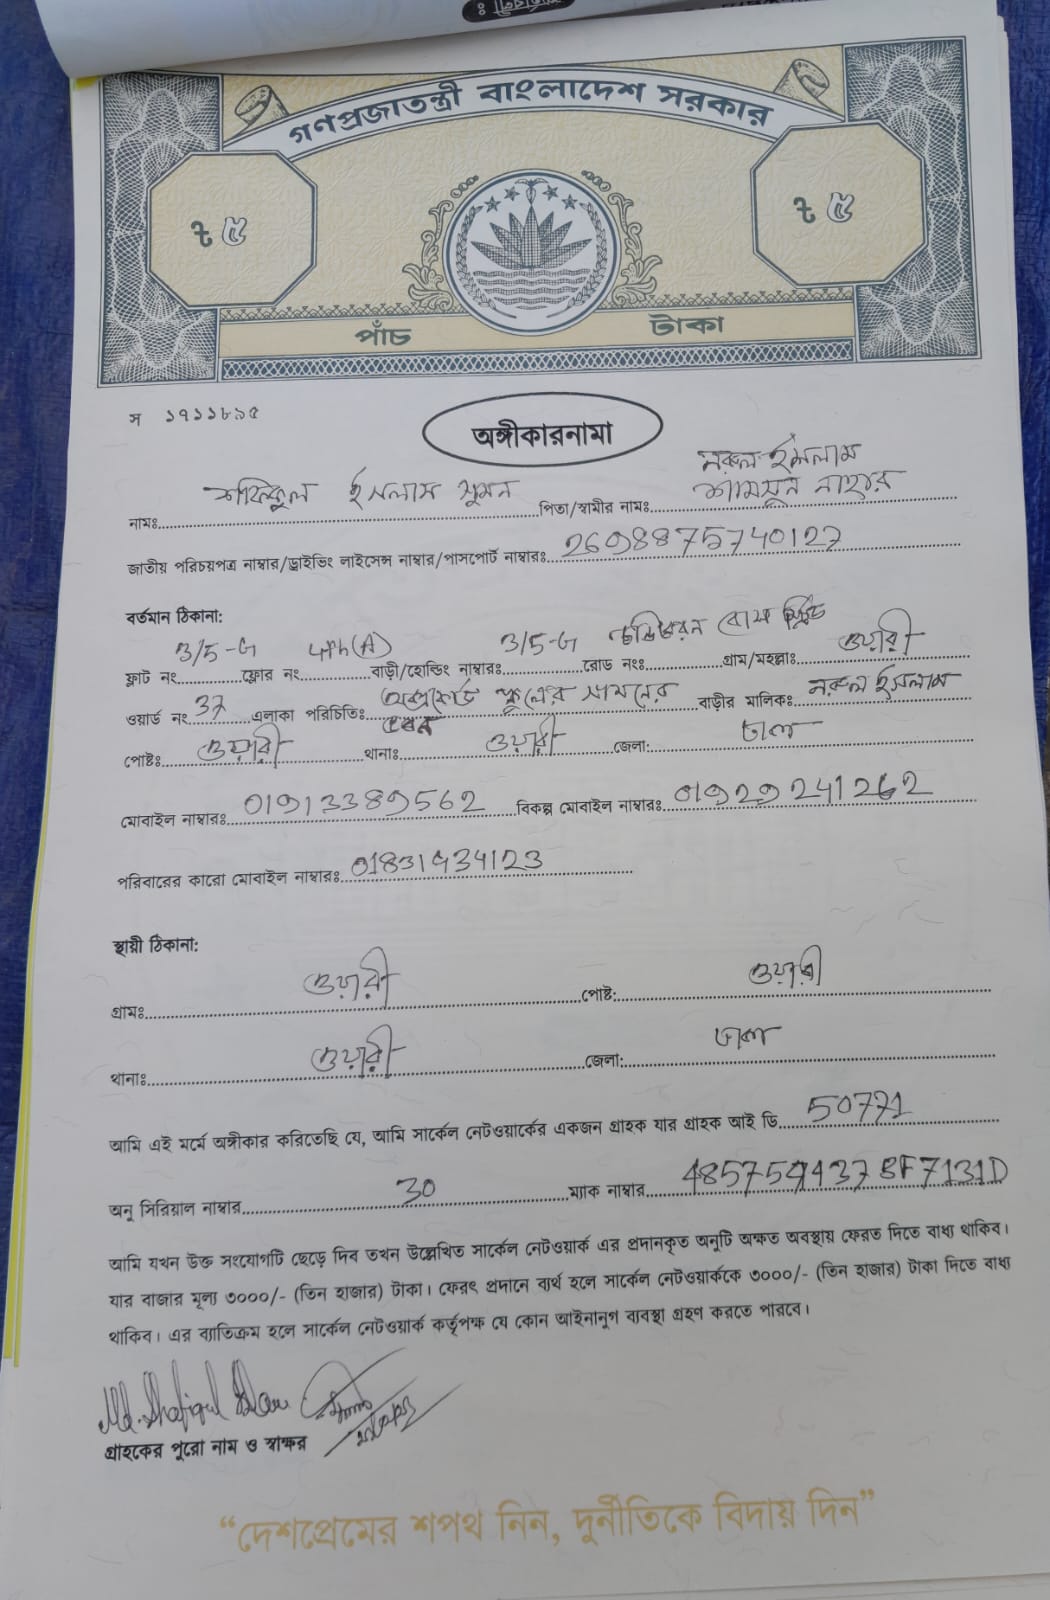 গণপ্রজাতন্ত্রী বাংলাদেশ সরকার
৳ ৫ ৳ ৫
পাঁচ টাকা
স ১৭১১৮৯৫
অঙ্গীকারনামা
নুরুল ইসলাম
নামঃ শফিকুল ইসলাম সুমন পিতা/স্বামীর নামঃ শামসুন নাহার
জাতীয় পরিচয়পত্র নাম্বার/ড্রাইভিং লাইসেন্স নাম্বার/পাসপোর্ট নাম্বারঃ 2698875740127
বর্তমান ঠিকানা:
ফ্লাট নং 3/5-G ফ্লোর নং 4th(A) বাড়ী/হোল্ডিং নাম্বারঃ 3/5-G রোড নংঃ গ্রাম/মহল্লাঃ ওয়ারী
ওয়ার্ড নং 37 এলাকা পরিচিতিঃ স্কুলের সামনের বাড়ীর মালিকঃ নুরুল ইসলাম
পোষ্টঃ ওয়ারী থানাঃ ওয়ারী জেলা: ঢাকা
মোবাইল নাম্বারঃ 01913389562 বিকল্প মোবাইল নাম্বারঃ 01929241262
পরিবারের কারো মোবাইল নাম্বারঃ 01831934123
স্থায়ী ঠিকানা:
গ্রামঃ ওয়ারী পোষ্ট: ওয়ারী
থানাঃ ওয়ারী জেলা: ঢাকা
আমি এই মর্মে অঙ্গীকার করিতেছি যে, আমি সার্কেল নেটওয়ার্কের একজন গ্রাহক যার গ্রাহক আই ডি 50771
অনু সিরিয়াল নাম্বার 30 ম্যাক নাম্বার 485754437BF7131D
আমি যখন উক্ত সংযোগটি ছেড়ে দিব তখন উল্লেখিত সার্কেল নেটওয়ার্ক এর প্রদানকৃত অনুটি অক্ষত অবস্থায় ফেরত দিতে বাধ্য থাকিব।
যার বাজার মূল্য ৩০০০/- (তিন হাজার) টাকা। ফেরৎ প্রদানে ব্যর্থ হলে সার্কেল নেটওয়ার্ককে ৩০০০/- (তিন হাজার) টাকা দিতে বাধ্য
থাকিব। এর ব্যাতিক্রম হলে সার্কেল নেটওয়ার্ক কর্তৃপক্ষ যে কোন আইনানুগ ব্যবস্থা গ্রহণ করতে পারবে।
Md. Shafiqul Islam
গ্রাহকের পুরো নাম ও স্বাক্ষর
“দেশপ্রেমের শপথ নিন, দুর্নীতিকে বিদায় দিন”